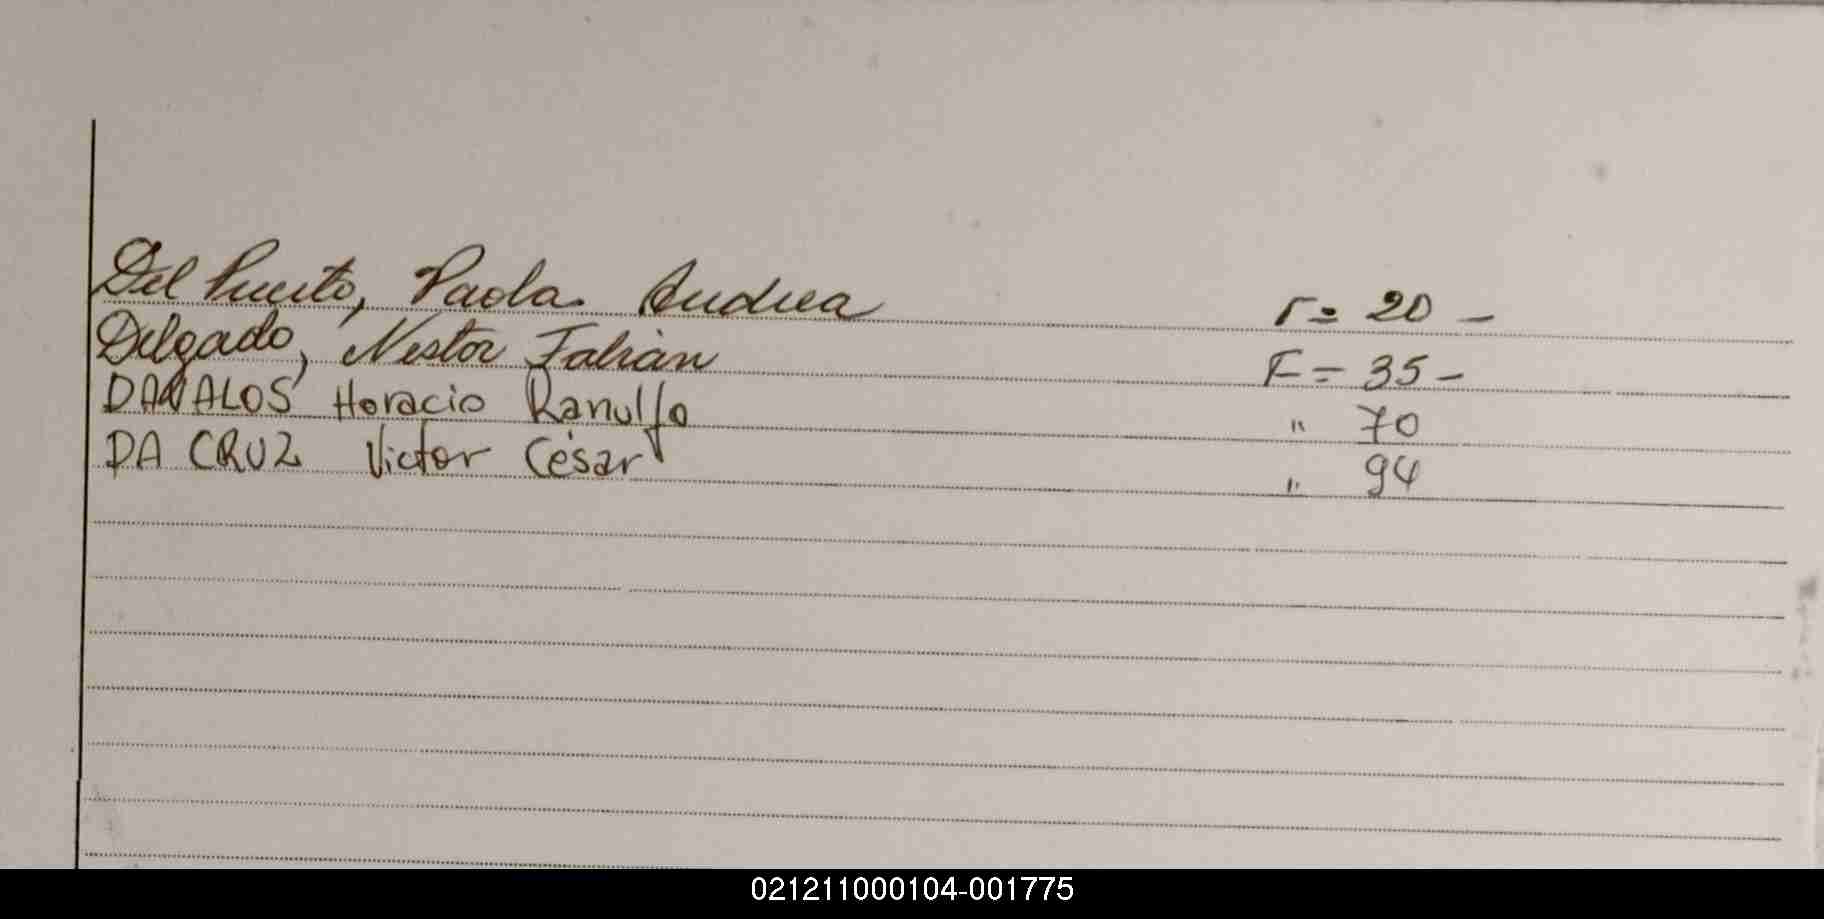 Del Puerto, Paola Andrea F= 20 -
Delgado, Nestor Fabián F= 35 -
DAVALOS Horacio Ranulfo " 70
DA CRUZ Victor César " 94
021211000104-001775